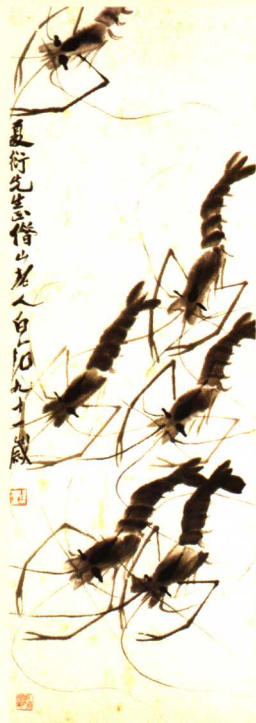 夏衍先生借山老人白石九十一歲